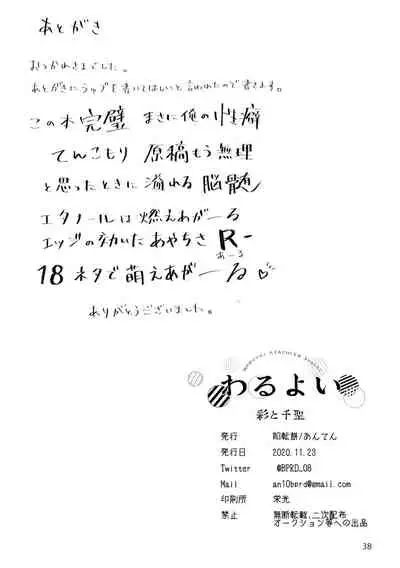 あとがき
おつかれさまでした。
あとがきにラップを書いてほしいと言われたので書きます。
この本完璧 まさに俺の性癖
てんこもり 原稿もう無理
と思ったときに溢れる脳髄
エタノールは燃えあがーる
エッジの効いた あやちさ R-
あーる
18 ネタで萌えあがーる♡
ありがとうございました。
わるよい
彩と千聖
発行 昭転餅/あんてん
発行日 2020.11.23
Twitter @BPRD_08
Mail an10bprd@gmail.com
印刷所 栄光
禁止 無断転載、二次配布
オークション等への出品
38